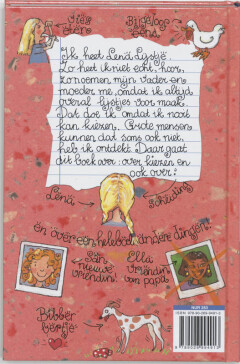 vies eten
Bijgeloof Eend
Ik heet Lena Lijstje.
Zo heet ik niet echt, hoor,
zo noemen mijn vader en
moeder me, omdat ik altijd
overal lijstjes voor maak.
Dat doe ik omdat ik nooit
kan kiezen. Grote mensen
kunnen dat soms ook niet,
heb ik ontdekt. Daar gaat
dit boek over: over kiezen en
ook over:
Lena
schutting
en over een heleboel andere dingen!
mijn nieuwe vriendin!
Ella
vriendin van papa
Bibber
beestje